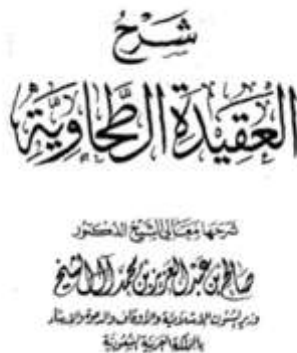 شَرْحُ
العَقِيدَةِ الطَّحَاوِيَّةِ
شرحها معالي الشيخ الدكتور
صالح بن عبد العزيز بن محمد آل الشيخ
وزير الشؤون الإسلامية والأوقاف والدعوة والإرشاد
بالمملكة العربية السعودية